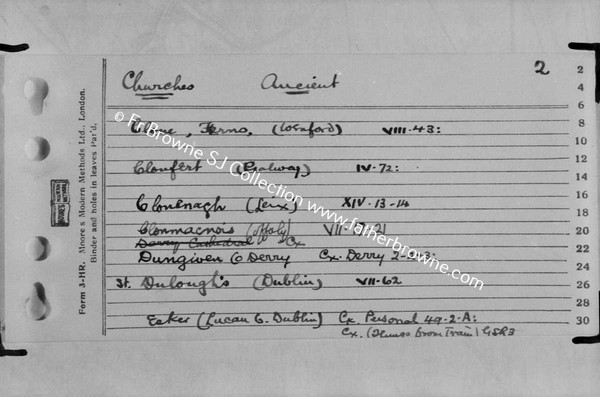 Churches Ancient 2
Clone, Ferns, (Wexford) VIII-43:
Clonfert (Galway) IV-72:
Clonenagh (Leix) XIV-13-14
Clonmacnois (Offaly) VII-
Cathedral Cx
Dungiven C Derry Cx. Derry 2-
St. Dulough's (Dublin) VII-62
Esker (Lucan C. Dublin) Cx. Personal 49-2-A:
Cx. (from Train) GSR3
2
4
6
8
10
12
14
16
18
20
22
24
26
28
30
Form 3-HR. Moore's Modern Methods Ltd., London.
Binder and holes in leaves Pat'd.
© Fr Browne SJ Collection www.fatherbrowne.com